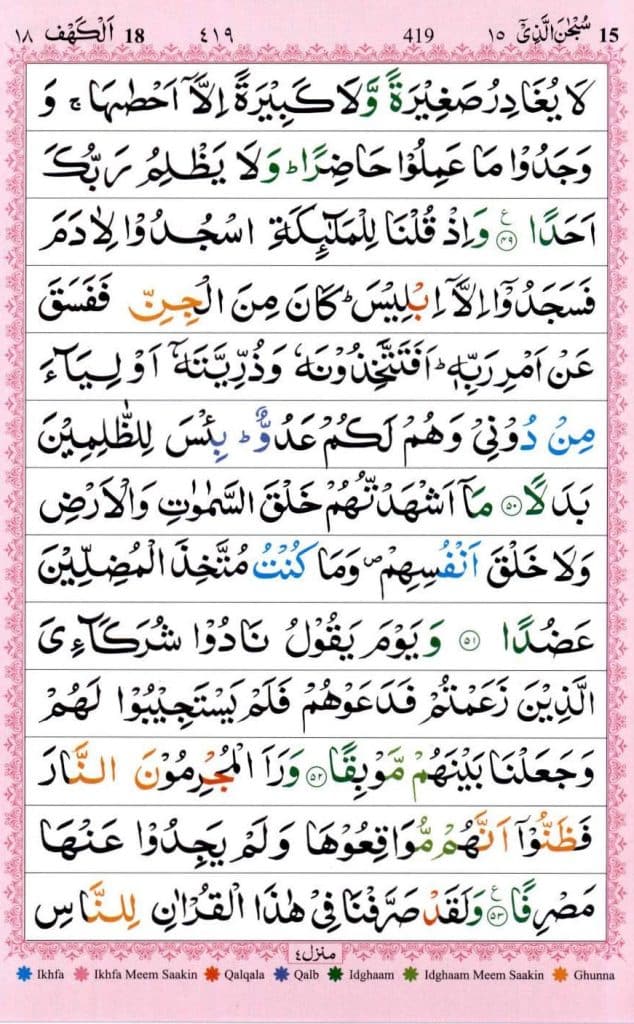 ١٨ اَلْكَهْف 18 ٤١٩ 419 سُبْحٰنَ الَّذِيْٓ ١٥ 15
لَا يُغَادِرُ صَغِيْرَةً وَّلَا كَبِيْرَةً اِلَّاۤ اَحْصٰىهَا ۚ وَ
وَجَدُوْا مَا عَمِلُوْا حَاضِرًا ؕ وَلَا يَظْلِمُ رَبُّكَ
اَحَدًا ۧ‏﴿۴۹﴾ وَاِذْ قُلْنَا لِلْمَلٰٓئِكَةِ اسْجُدُوْا لِاٰدَمَ
فَسَجَدُوْۤا اِلَّاۤ اِبْلِيْسَ ؕ كَانَ مِنَ الْجِنِّ فَفَسَقَ
عَنْ اَمْرِ رَبِّهٖ ؕ اَفَتَتَّخِذُوْنَهٗ وَذُرِّيَّتَهٗۤ اَوْلِيَآءَ
مِنْ دُوْنِيْ وَهُمْ لَكُمْ عَدُوٌّ ؕ بِئْسَ لِلظّٰلِمِيْنَ
بَدَلًا ﴿۵۰﴾ مَاۤ اَشْهَدْتُّهُمْ خَلْقَ السَّمٰوٰتِ وَالْاَرْضِ
وَلَا خَلْقَ اَنْفُسِهِمْ ۪ وَمَا كُنْتُ مُتَّخِذَ الْمُضِلِّيْنَ
عَضُدًا ﴿۵۱﴾ وَيَوْمَ يَقُوْلُ نَادُوْا شُرَكَآءِيَ
الَّذِيْنَ زَعَمْتُمْ فَدَعَوْهُمْ فَلَمْ يَسْتَجِيْبُوْا لَهُمْ
وَجَعَلْنَا بَيْنَهُمْ مَّوْبِقًا ﴿۵۲﴾ وَرَاَ الْمُجْرِمُوْنَ النَّارَ
فَظَنُّوْۤا اَنَّهُمْ مُّوَاقِعُوْهَا وَلَمْ يَجِدُوْا عَنْهَا
مَصْرِفًا ﴿۵۳﴾ وَلَقَدْ صَرَّفْنَا فِيْ هٰذَا الْقُرْاٰنِ لِلنَّاسِ
منزل ٤
Ikhfa Ikhfa Meem Saakin Qalqala Qalb Idghaam Idghaam Meem Saakin Ghunna